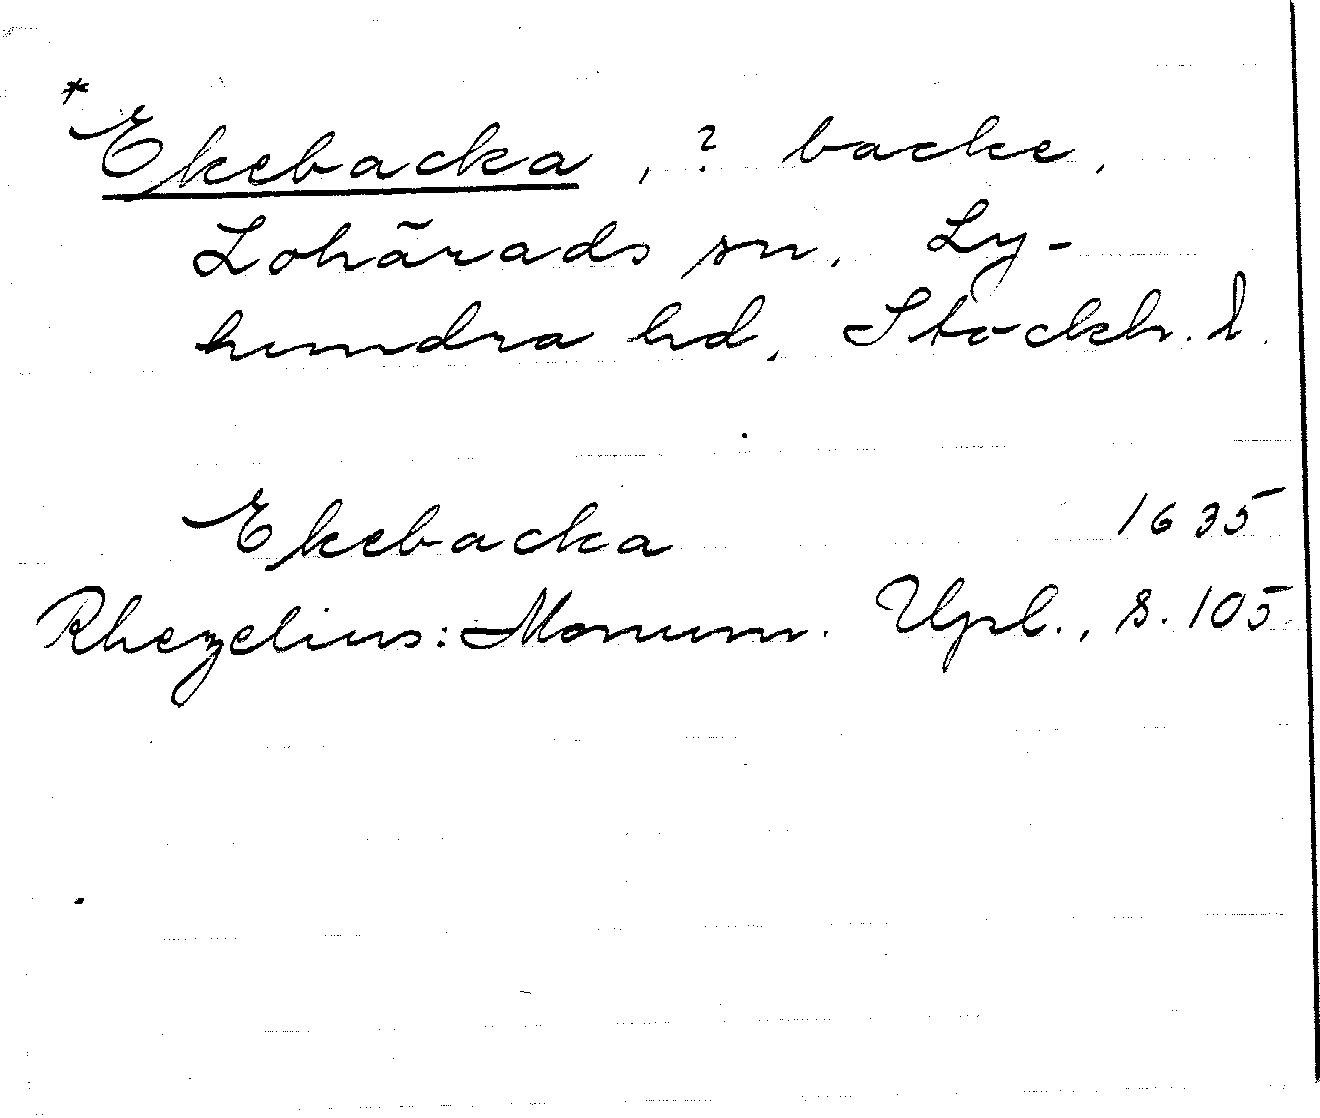 *Ekebacka, ? backe,
Lohärads sn, Ly-
hundra hd, Stockh. l.
Ekebacka 1635
Rhezelius: Monum. Upl., s. 105